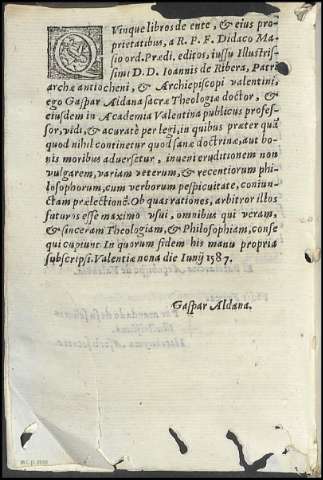 QVinque libros de ente, & eius pro
prietatibus, a R. P. F. Didaco Ma
sio ord. Prædi. editos, iussu Illustris-
simi D. D. Ioannis de Ribera, Patri
archæ antiocheni, & Archiepiscopi valentini,
ego Gaspar Aldana sacræ Theologiæ doctor, &
eiusdem in Academia Valentina publicus profes-
sor, vidi, & accuratè per legi, in quibus præter quā
quod nihil continetur quod sanæ doctrinæ, aut bo
nis moribus aduersetur, inueni eruditionem non
vulgarem, variam veterum, & recentiorum phi
losophorum, cum verborum pespicuitate, coniun-
ctam prælectionē. Ob quas rationes, arbitror illos
futuros esse maximo vsui, omnibus qui veram,
& sinceram Theologiam, & Philosophiam, conse
qui cupiunt. In quorum fidem his manu propria
subscripsi. Valentiæ nona die Iunij 1587.
Gaspar Aldana.